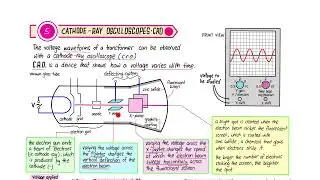 5 CATHODE-RAY OSCILLOSCOPES-CRO
The voltage waveforms of a transformer can be observed
with a cathode-ray oscilloscope (c.r.o)
C.R.O is a device that shows how a voltage varies with time.
FRONT VIEW
vacuum glass tube
deflecting system
fluorescent screen
zinc sulfide
voltage to be studied
electron gun
anode
the electron gun emits
a beam of electrons
(a cathode ray), which
is produced by the
cathode (-)
varying the voltage across
the Y-plates changes the
vertical deflection of the
electron beam
varying the voltage across the
X-plates changes the speed
at which the electron beam
sweeps horizontally across
the fluorescent screen
a bright spot is created when the
electron beam strikes the fluorescent
screen, which is coated with
zinc sulfide, a chemical that glows
when electrons strike it
the larger the number of electrons
striking the screen, the brighter
the spot
voltage applied